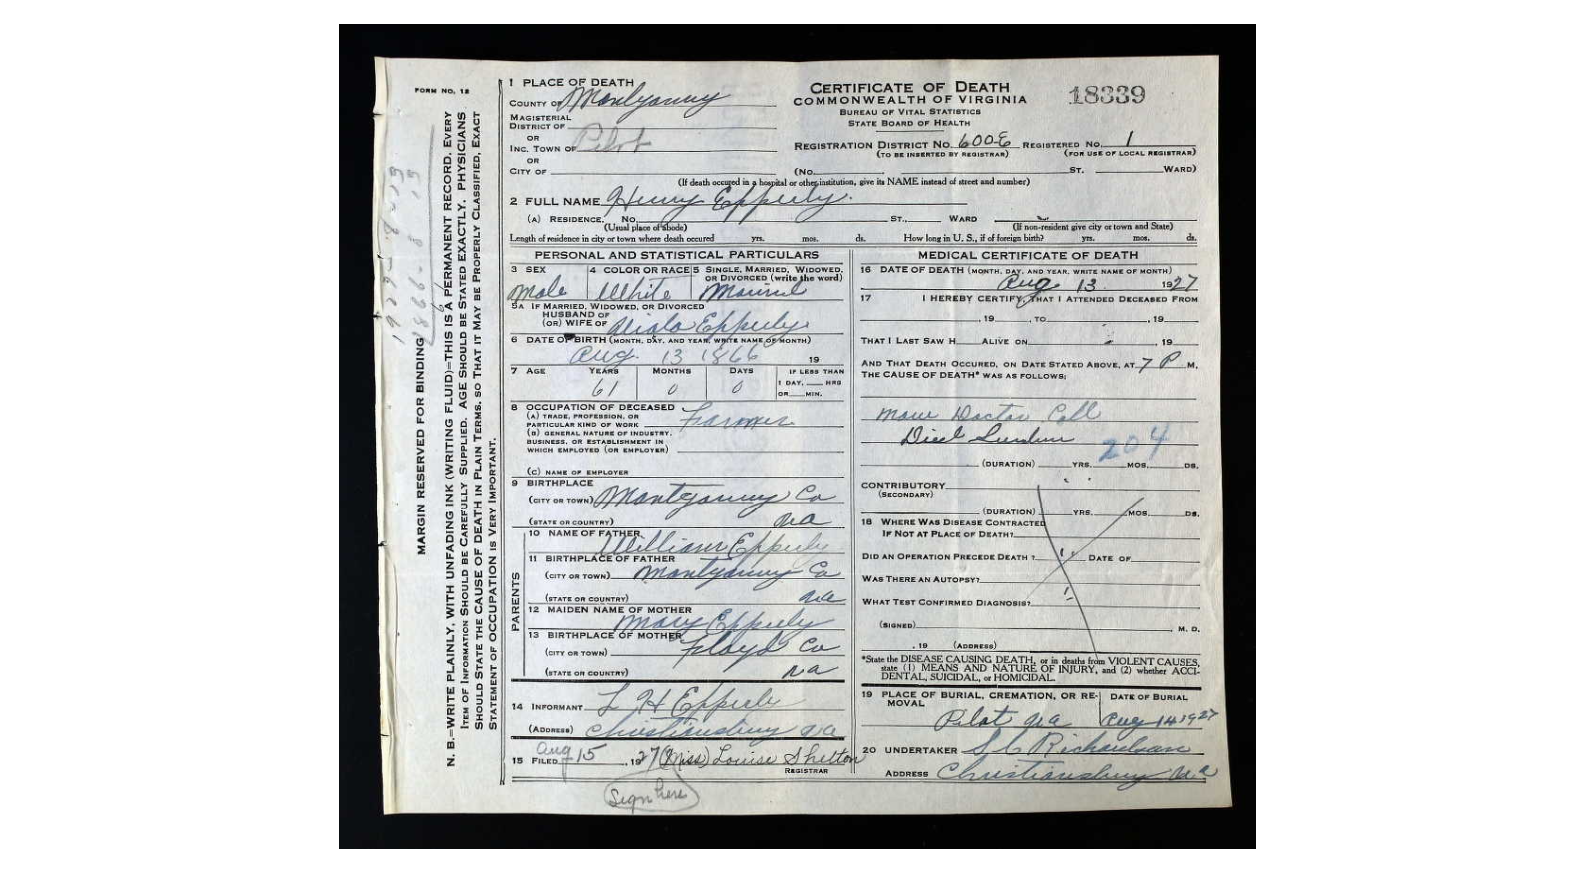 FORM NO. 12
MARGIN RESERVED FOR BINDING
N. B.—WRITE PLAINLY, WITH UNFADING INK (WRITING FLUID)—THIS IS A PERMANENT RECORD. EVERY
ITEM OF INFORMATION SHOULD BE CAREFULLY SUPPLIED. AGE SHOULD BE STATED EXACTLY. PHYSICIANS
SHOULD STATE THE CAUSE OF DEATH IN PLAIN TERMS, SO THAT IT MAY BE PROPERLY CLASSIFIED, EXACT
STATEMENT OF OCCUPATION IS VERY IMPORTANT.
1 PLACE OF DEATH
COUNTY OF Montgomery
MAGISTERIAL
DISTRICT OF
OR
INC. TOWN OF Pilot
OR
CITY OF
CERTIFICATE OF DEATH
COMMONWEALTH OF VIRGINIA
BUREAU OF VITAL STATISTICS
STATE BOARD OF HEALTH
18339
REGISTRATION DISTRICT NO. 600E REGISTERED NO. 1
(TO BE INSERTED BY REGISTRAR) (FOR USE OF LOCAL REGISTRAR)
(No. ST. WARD)
(If death occured in a hospital or other institution, give its NAME instead of street and number)
2 FULL NAME Henry Epperly.
(A) RESIDENCE. No. ST., WARD
(Usual place of abode) (If non-resident give city or town and State)
Length of residence in city or town where death occured yrs. mos. ds. How long in U. S., if of foreign birth? yrs. mos. ds.
PERSONAL AND STATISTICAL PARTICULARS
3 SEX 4 COLOR OR RACE 5 SINGLE, MARRIED, WIDOWED,
OR DIVORCED (write the word)
Male White Married
5A IF MARRIED, WIDOWED, OR DIVORCED
HUSBAND OF
(OR) WIFE OF Epperly
6 DATE OF BIRTH (MONTH, DAY, AND YEAR, WRITE NAME OF MONTH)
Aug. 13 1866 19
7 AGE YEARS MONTHS DAYS IF LESS THAN
1 DAY, HRS
OR MIN.
61 0 0
8 OCCUPATION OF DECEASED
(A) TRADE, PROFESSION, OR
PARTICULAR KIND OF WORK Farmer
(B) GENERAL NATURE OF INDUSTRY,
BUSINESS, OR ESTABLISHMENT IN
WHICH EMPLOYED (OR EMPLOYER)
(C) NAME OF EMPLOYER
9 BIRTHPLACE
(CITY OR TOWN) Montgomery Co
(STATE OR COUNTRY) Va
PARENTS
10 NAME OF FATHER William Epperly
11 BIRTHPLACE OF FATHER
(CITY OR TOWN) Montgomery Co
(STATE OR COUNTRY) Va
12 MAIDEN NAME OF MOTHER
Mary Epperly
13 BIRTHPLACE OF MOTHER
(CITY OR TOWN) Floyd Co
(STATE OR COUNTRY) Va
14 INFORMANT L H Epperly
(ADDRESS) Christiansburg Va
15 FILED Aug 15, 1927 (Miss) Louise Shelton
REGISTRAR
Sign here
MEDICAL CERTIFICATE OF DEATH
16 DATE OF DEATH (MONTH, DAY, AND YEAR, WRITE NAME OF MONTH)
Aug 13 1927
17 I HEREBY CERTIFY, THAT I ATTENDED DECEASED FROM
, 19 , TO , 19
THAT I LAST SAW H ALIVE ON , 19
AND THAT DEATH OCCURED, ON DATE STATED ABOVE, AT 7 P M.
THE CAUSE OF DEATH* WAS AS FOLLOWS:
Doctor Call
Died
204
(DURATION) YRS. MOS. DS.
CONTRIBUTORY
(SECONDARY)
(DURATION) YRS. MOS. DS.
18 WHERE WAS DISEASE CONTRACTED
IF NOT AT PLACE OF DEATH?
DID AN OPERATION PRECEDE DEATH? DATE OF
WAS THERE AN AUTOPSY?
WHAT TEST CONFIRMED DIAGNOSIS?
(SIGNED) M. D.
, 19 (ADDRESS)
*State the DISEASE CAUSING DEATH, or in deaths from VIOLENT CAUSES,
state (1) MEANS AND NATURE OF INJURY, and (2) whether ACCI-
DENTAL, SUICIDAL, or HOMICIDAL.
19 PLACE OF BURIAL, CREMATION, OR RE-
MOVAL DATE OF BURIAL
Pilot Va Aug 14 1927
20 UNDERTAKER S C Richardson
ADDRESS Christiansburg Va